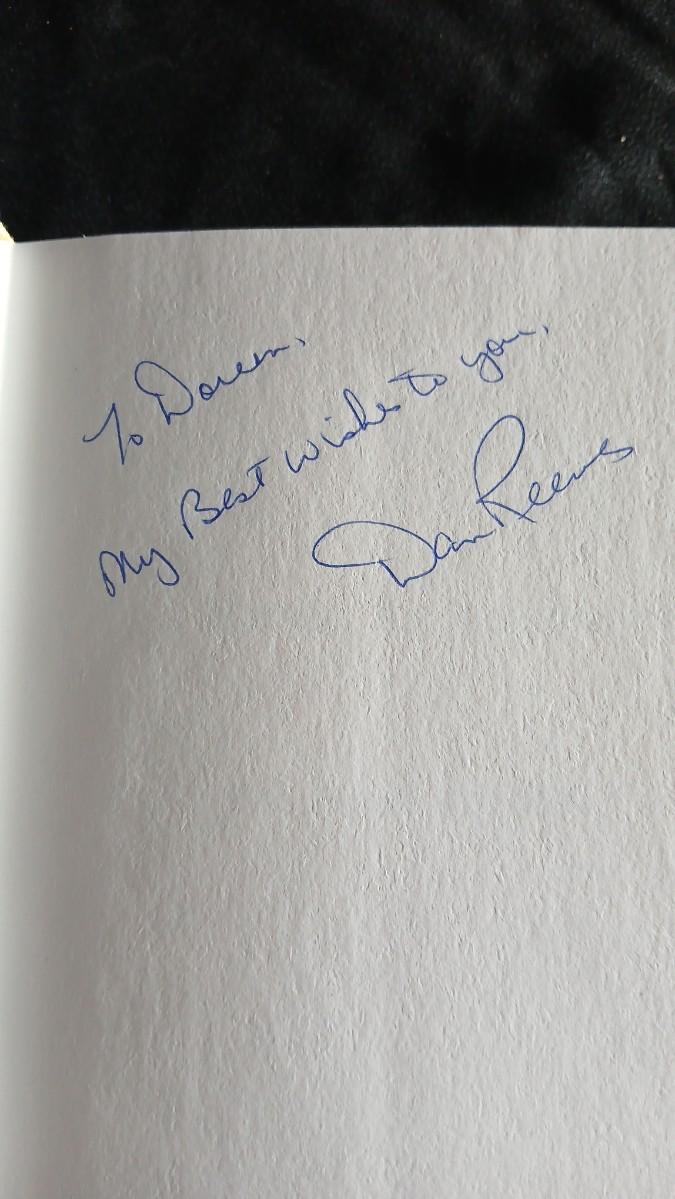 To Doreen,
My Best wishes to you,
Dan Reeves